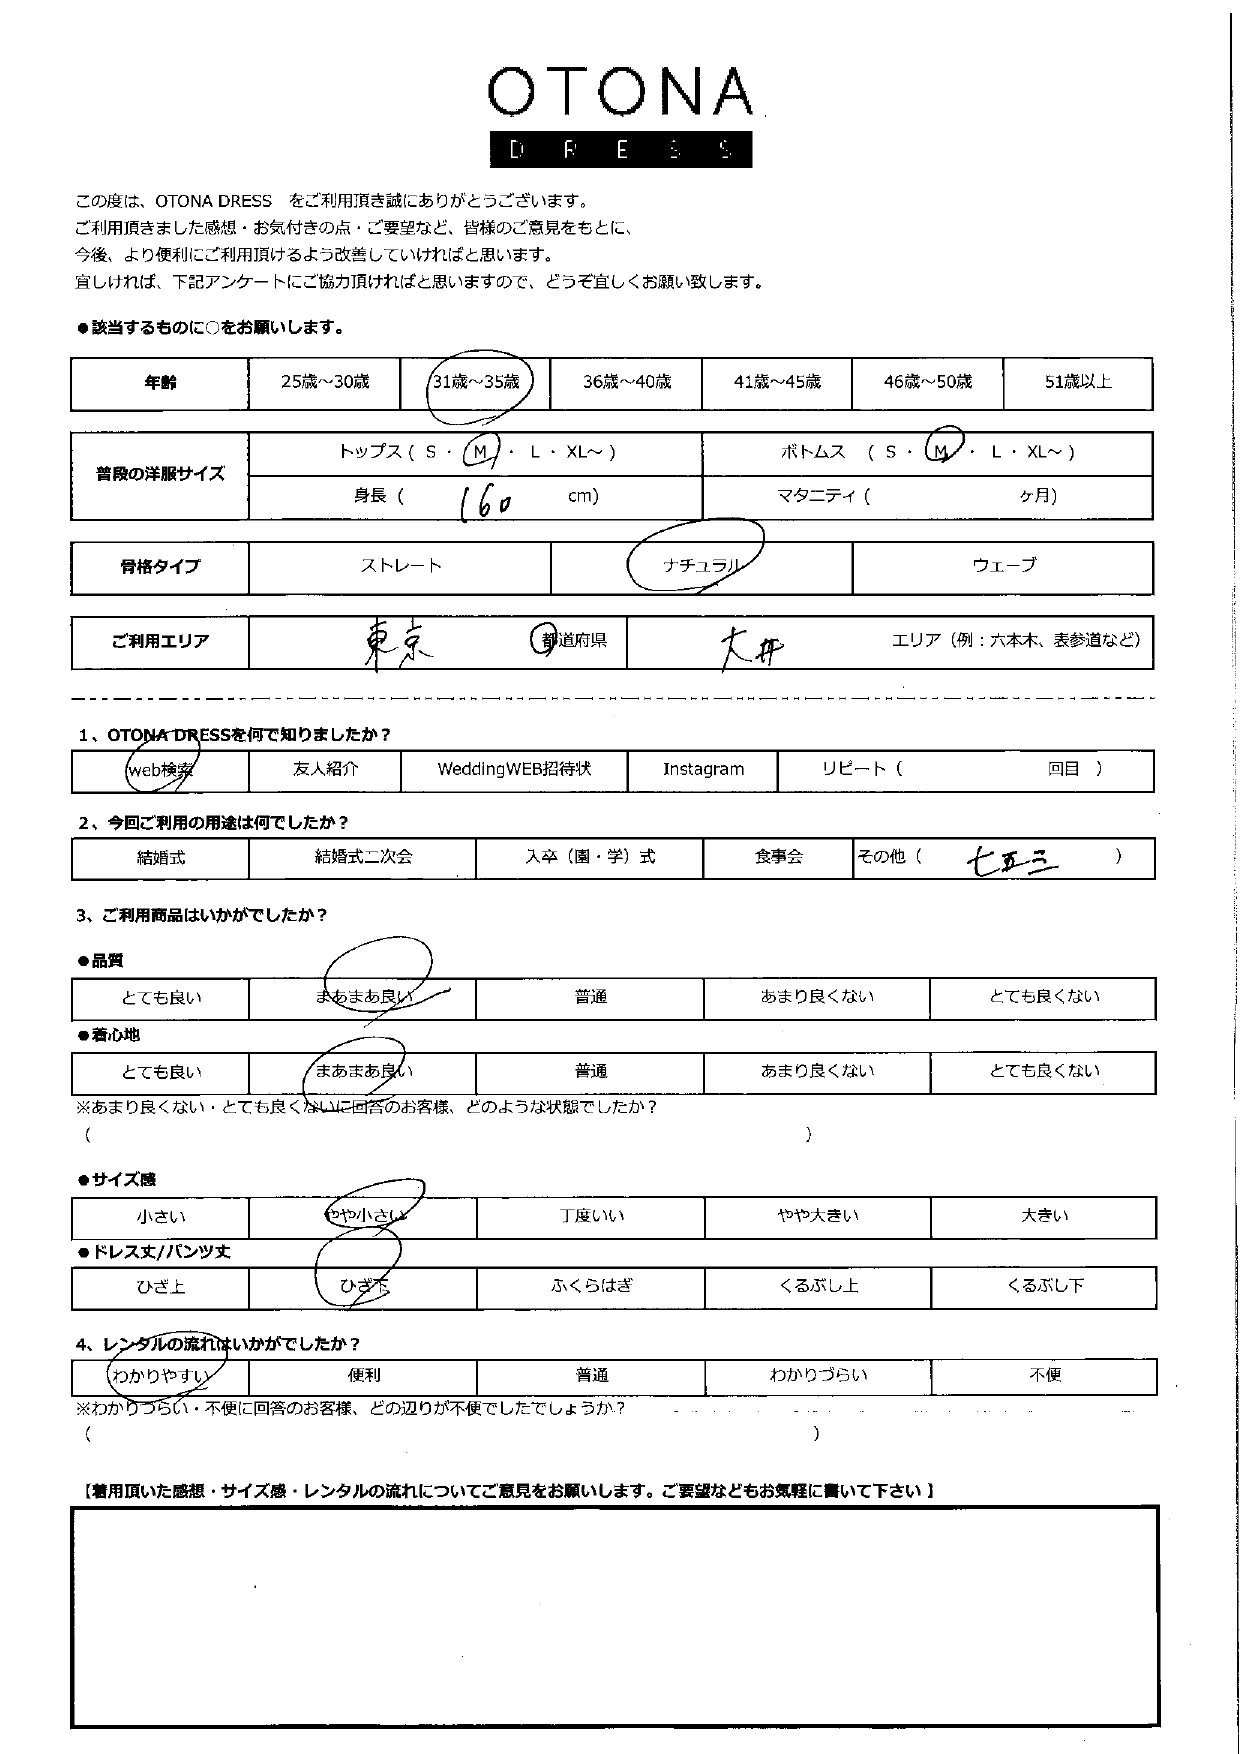 OTONA
DRESS
この度は、OTONA DRESS　をご利用頂き誠にありがとうございます。
ご利用頂きました感想・お気付きの点・ご要望など、皆様のご意見をもとに、
今後、より便利にご利用頂けるよう改善していければと思います。
宜しければ、下記アンケートにご協力頂ければと思いますので、どうぞ宜しくお願い致します。
●該当するものに○をお願いします。
年齢 25歳～30歳 31歳～35歳 36歳～40歳 41歳～45歳 46歳～50歳 51歳以上
普段の洋服サイズ トップス ( S ・ M ・ L ・ XL～ ) ボトムス ( S ・ M ・ L ・ XL～ )
身長 ( 160 cm) マタニティ ( ヶ月)
骨格タイプ ストレート ナチュラル ウェーブ
ご利用エリア 東京 都道府県 大井 エリア（例：六本木、表参道など）
1、OTONA DRESSを何で知りましたか？
web検索 友人紹介 WeddingWEB招待状 Instagram リピート ( 回目 )
2、今回ご利用の用途は何でしたか？
結婚式 結婚式二次会 入卒（園・学）式 食事会 その他 ( 七五三 )
3、ご利用商品はいかがでしたか？
●品質
とても良い まあまあ良い 普通 あまり良くない とても良くない
●着心地
とても良い まあまあ良い 普通 あまり良くない とても良くない
※あまり良くない・とても良くないに回答のお客様、どのような状態でしたか？
( )
●サイズ感
小さい やや小さい 丁度いい やや大きい 大きい
●ドレス丈/パンツ丈
ひざ上 ひざ下 ふくらはぎ くるぶし上 くるぶし下
4、レンタルの流れはいかがでしたか？
わかりやすい 便利 普通 わかりづらい 不便
※わかりづらい・不便に回答のお客様、どの辺りが不便でしたでしょうか？
( )
【着用頂いた感想・サイズ感・レンタルの流れについてご意見をお願いします。ご要望などもお気軽に書いて下さい】